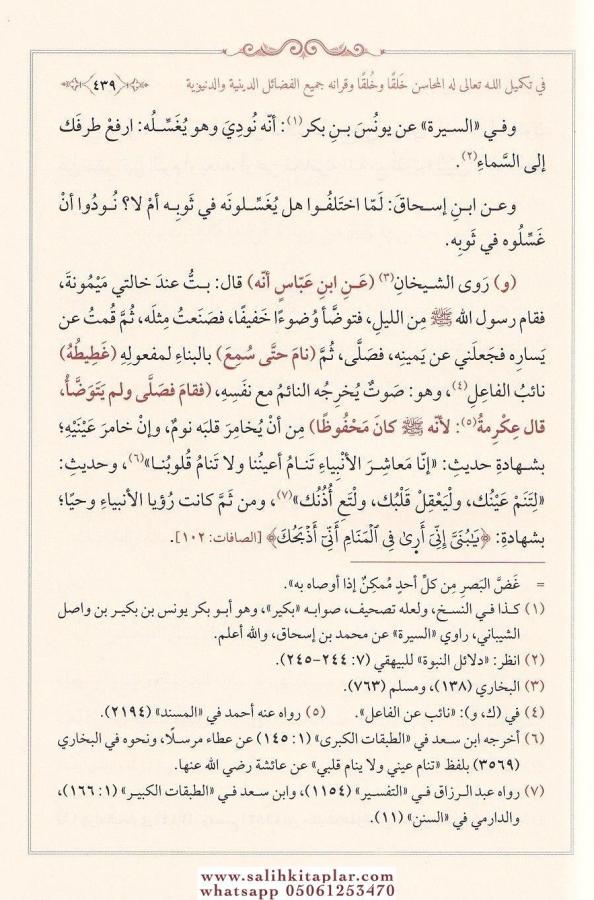 في تكميل الله تعالى له المحاسن خَلقًا وخُلقًا وقرانه جميع الفضائل الدينية والدنيوية ٤٣٩
وفي «السيرة» عن يونُسَ بنِ بكر(١): أنّه نُودِيَ وهو يُغَسِّلُه: ارفعْ طرفَك
إلى السَّماءِ(٢).
وعن ابنِ إسحاقَ: لَمّا اختَلفُوا هل يُغَسِّلونَه في ثوبِه أمْ لا؟ نُودُوا أنْ
غَسِّلُوه في ثَوبِه.
(و) رَوى الشيخانِ(٣) (عَنِ ابنِ عَبّاسٍ أنّه) قال: بتُّ عندَ خالتي مَيْمُونةَ،
فقام رسول الله ﷺ مِن الليلِ، فتوضَّأ وُضوءًا خَفيفًا، فصَنَعتُ مِثلَه، ثُمَّ قُمتُ عن
يَسارِه فجَعلَني عن يَمينِه، فصَلَّى، ثُمَّ (نامَ حتَّى سُمِعَ) بالبناءِ لمفعولِهِ (غَطِيطُهُ)
نائبُ الفاعلِ(٤)، وهو: صَوتٌ يُخرِجُه النائمُ مع نفَسِهِ، (فقامَ فصَلَّى ولم يَتَوَضَّأْ،
قال عِكْرِمةُ(٥): لأنَّه ﷺ كانَ مَحْفُوظًا) مِن أنْ يُخامِرَ قلبَه نومٌ، وإنْ خامَرَ عَيْنَيْهِ؛
بشهادةِ حديثِ: «إنّا مَعاشِرَ الأنْبياءِ تَنامُ أعيُننا ولا تَنامُ قُلوبُنا»(٦)، وحديثِ:
«لِتَنَمْ عَيْنُك، ولْيَعْقِلْ قَلْبُك، ولْتَعِ أُذُنُك»(٧)، ومن ثَمَّ كانت رُؤيا الأنبياءِ وحيًا؛
بشهادةِ: ﴿يَٰبُنَيَّ إِنِّيَ أَرَىٰ فِي ٱلۡمَنَامِ أَنِّيٓ أَذۡبَحُكَ﴾ [الصافات: ١٠٢].
= غَضَّ البَصرِ مِن كلِّ أحدٍ مُمكِنٌ إذا أوصاه به».
(١) كذا في النسخ، ولعله تصحيف، صوابه «بكير»، وهو أبو بكر يونس بن بكير بن واصل
الشيباني، راوي «السيرة» عن محمد بن إسحاق، والله أعلم.
(٢) انظر: «دلائل النبوة» للبيهقي (٧: ٢٤٤-٢٤٥).
(٣) البخاري (١٣٨)، ومسلم (٧٦٣).
(٤) في (ك، و): «نائب عن الفاعل». (٥) رواه عنه أحمد في «المسند» (٢١٩٤).
(٦) أخرجه ابن سعد في «الطبقات الكبرى» (١: ١٤٥) عن عطاء مرسلًا، ونحوه في البخاري
(٣٥٦٩) بلفظ «تنام عيني ولا ينام قلبي» عن عائشة رضي الله عنها.
(٧) رواه عبد الرزاق في «التفسير» (١١٥٤)، وابن سعد في «الطبقات الكبير» (١: ١٦٦)،
والدارمي في «السنن» (١١).
www.salihkitaplar.com
whatsapp 05061253470